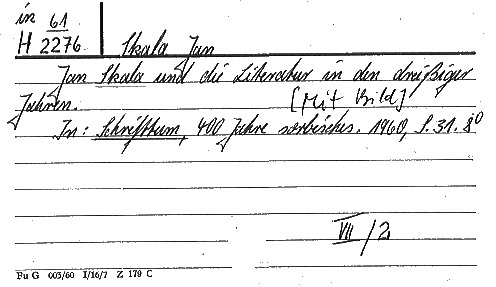 in 61
H 2276 Skala Jan
Jan Skala und die Literatur in den dreißiger
Jahren. [Mit Bild]
In: Schrifttum, 400 Jahre sorbisches. 1960, S. 31. 8°
VII/2
Fu G 003/60 I/16/7 Z 179 C